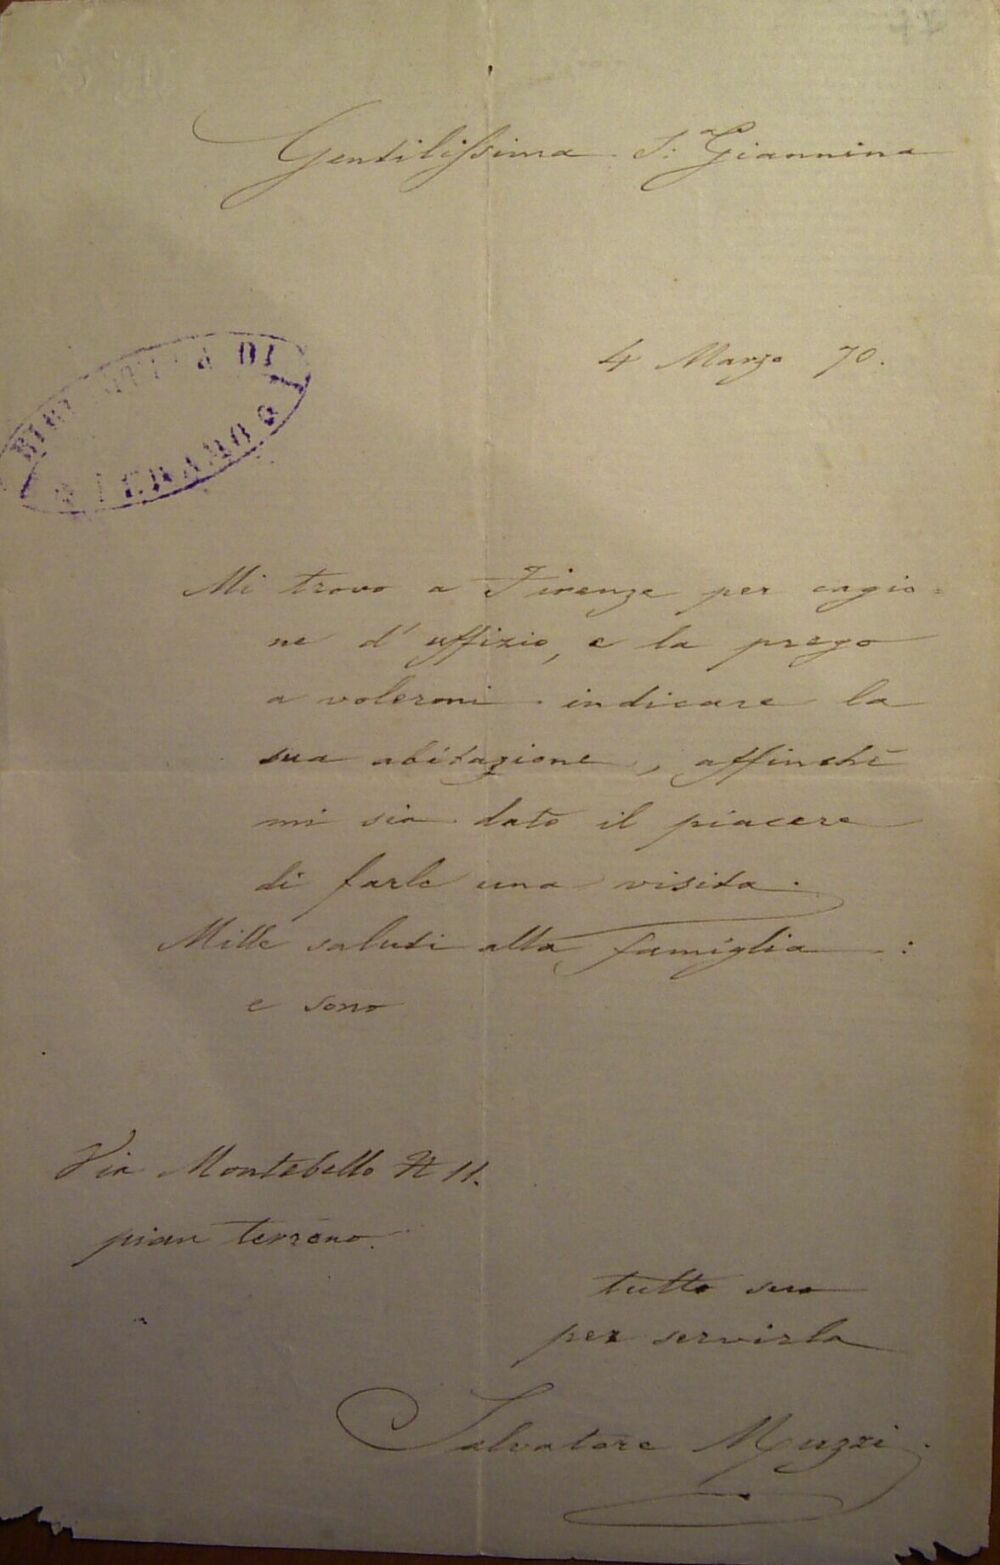 Gentilissima S.ª Giannina
4 Marzo 70.
BIBLIOTECA DI
TERAMO
Mi trovo a Firenze per cagio=
ne d'uffizio, e la prego
a volermi indicare la
sua abitazione, affinchè
mi sia dato il piacere
di farle una visita.
Mille saluti alla famiglia:
e sono
Via Montebello N 11.
pian terreno.
tutto suo
per servirla
Salvatore Muzzi.